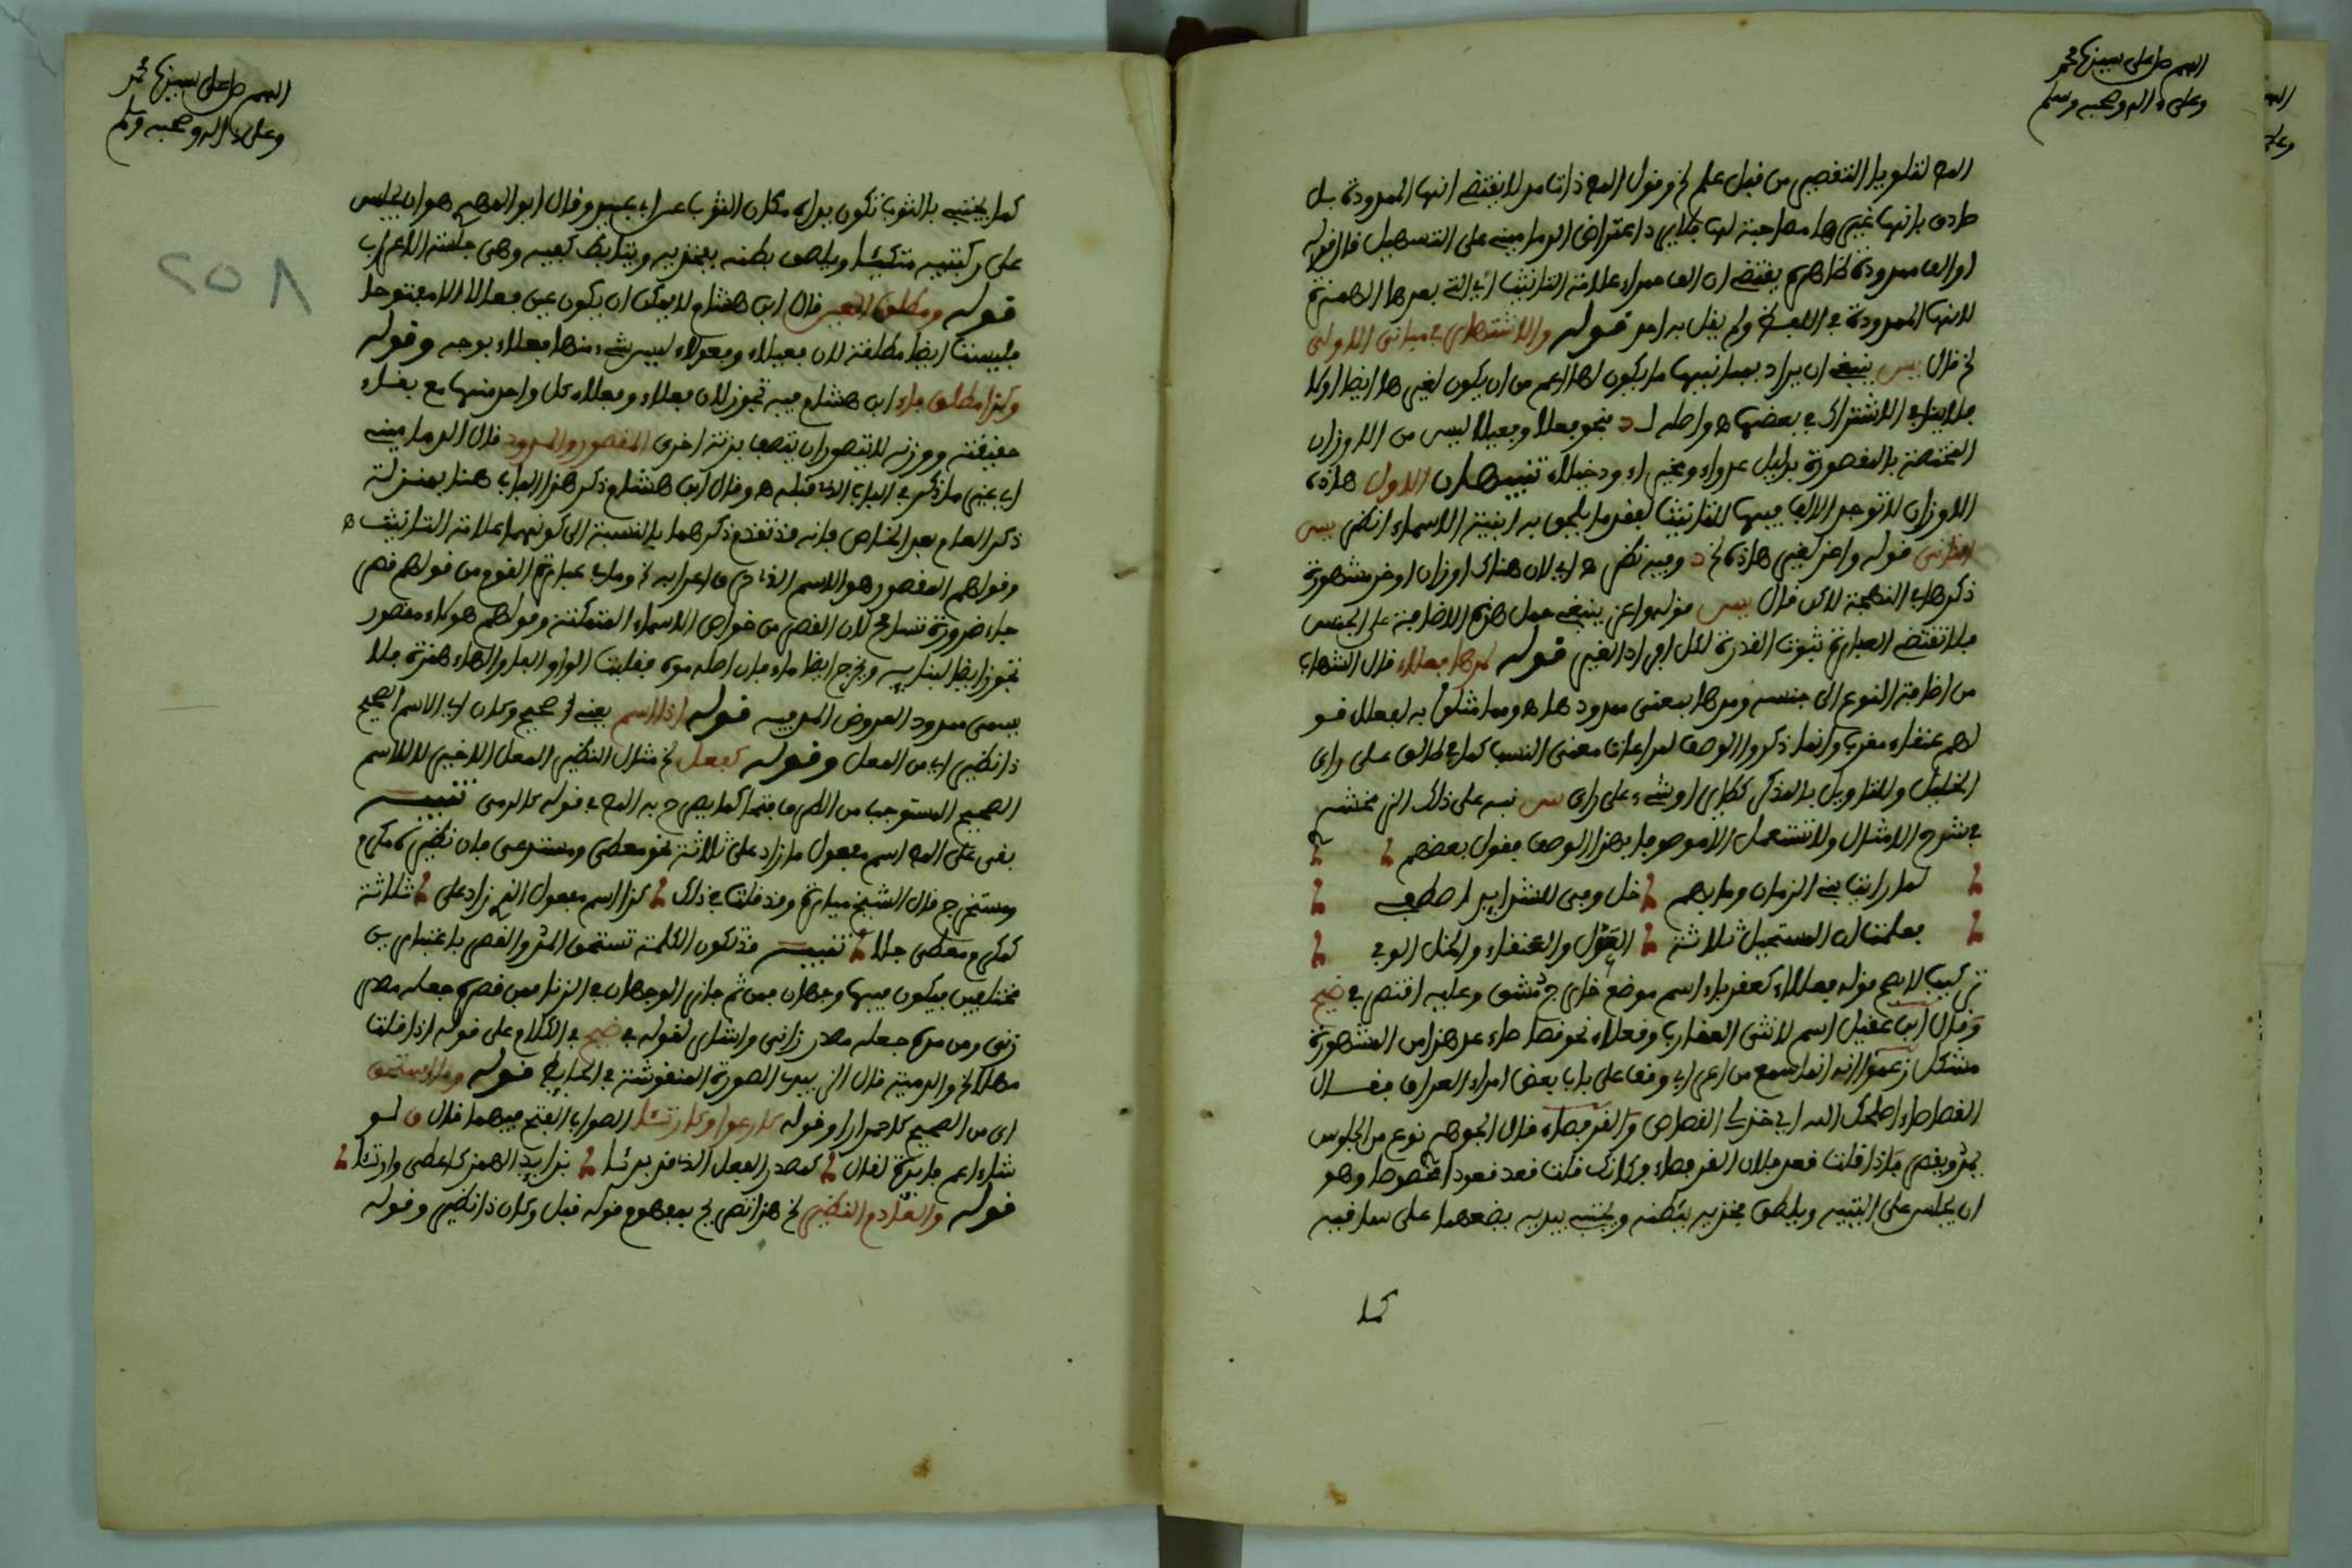 اللهم صل على سيدنا محمد
وعلى ءاله وصحبه وسلم
طردي بانها غيرها مصاحبة لها فلا يرد اعتراض الدماميني على التسهيل قال قوله
او الف ممدودة ظاهره يقتضي ان الف حمراء علامة التانيث اي التي بعدها الهمزة
لانها الممدودة في اللفظ ولم يقل به احد قوله والاشتهار في مباني الاولى
لخ قال يس ينبغي ان يراد بمبانيها ما يكون لها اعم من ان يكون لغيرها ايضا اولا
فلا ينافي الاشتراك في بعضها ه واصله لـ د فنحو فعلا وفعيلا ليس من الاوزان
المختصة بالمقصورة بدليل عدواء ودخيلاء تنبيهان الاول هاذه
الاوزان لا توجد الالف فيها للتانيث لفقد ما يلحق به ابنية الاسماء انظر يس
الثاني قوله واعز لغير هاذه لخ د وفيه نظر ه اي لان هناك اوزان اوخر مشهورة
ذكرها في النكهة لاكن قال يس قوله واعز ينبغي حمل هذه الاضافة على الجنس
فلا تقتضي العبارة ثبوت القدرة لكل افراد الغير قوله لمدها فعلاء قال الشهاب
من اضافة النوع الى جنسه ومدها بمعنى ممدودها ه ومما مثلوا به لفعلل قو
لهم عنقاء مغرب وانما ذكروا الوصف لمراعاة معنى النسب كما في طالق على راي
الخليل وللتاويل بالمذكر كطاير او شيء على راي س نبه على ذلك الزمخشري
في شرح الامثال ولا تستعمل الا موصوفا بهذا الوصف فقول بعضهم
لما رايت بني الزمان وما بهم خل وفي للشدايد اصطفي
فعلمت ان المستحيل ثلاثة الغول والعنقاء والخل الوفي
تركيب لا يصح قوله فعللاء كعقرباء اسم موضع خارج دمشق وعليه اقتصر في ضيح
وقال ابن عقيل اسم لانثى العقارب وفعلاء نحو قصاصاء عد هذا من المشهورة
مشكل زعموا انه انما سمع من اعرابي وقف على باب بعض امراء العراق فقال
القصاصاء اصلحك الله اي خذ لي القصاص والقرفصاء قال الجوهري نوع من الجلوس
يمد ويقصر فاذا قلت قعد فلان القرفصاء فكانك قلت قعد قعودا مخصوصا وهو
ان يجلس على اليتيه ويلصق فخذيه ببطنه ويحتبي بيديه يضعهما على ساقيه
كما
اللهم صل على سيدنا محمد
وعلى ءاله وصحبه وسلم
٢٥٨
كما يحتبي بالثوب تكون يداه مكان الثوب عن ابي عبيد وقال ابو المهدي هو ان يجلس
على ركبتيه متكئا ويلصق بطنه بفخذيه ويتابط كفيه وهي جلسة الاعراب
قوله ومطلق العين قال ابن هشام لا يمكن ان يكون عين فعالا الا مفتوحا
فليست ايضا مطلقة لان فعيلاء وفعولاء ليس شيء منها فعالاء بوجه وقوله
وكذا مطلق فاء ابن هشام فيه تجوز لان فعلاء وفعلاء كل واحد منها مع بقاء
حقيقته ووزنه لا يتصور ان يتصف بزنة اخرى المقصور والممدود قال الدماميني
اي غير ما ذكر في الباب الذي قبله ه وقال ابن هشام ذكر هذا الباب هنا بمنزلة
ذكر العام بعد الخاص فانه قد تقدم ذكرهما بالنسبة الى كونهما علامة التانيث ه
وقولهم المقصور هو الاسم الذي حرف اعرابه لخ وما في عبارة القوم من قولهم قصر
جاء ضرورة تسامح لان القصر من خواص الاسماء المتمكنة وقولهم هؤلاء مقصور
تجوز ايضا لبنايه ويخرج ايضا ماء فان اصله موه فقلبت الواو الفا والهاء همزة فلا
يسمى ممدود العروض المريه قوله اذا اسم يعني صحيح وكان اي الاسم الصحيح
ذا نظير اي من الفعل وقوله كفعل لخ مثال النظير المعل الاخير لا للاسم
الصحيح المستوجب من الطرف فتحا كما يصرح به المص في قوله كالدمى تنبيه
بقي على المص اسم مفعول ما زاد على ثلاثة نحو معطى ومستدعى فان نظيره مكرم
ومستخرج قال الشيخ ميارة وقد قلت في ذلك كذا اسم مفعول الذي زاد على ثلاثة
كمكرم معطى جلا تنبيه قد تكون الكلمة تستحق المد والقصر باعتبارين
مختلفين فيكون فيها وجهان فمن ثم جاز الوجهان في الزنا فمن قصره جعله مصدر
زنى ومن مده جعله مصدر زانى واشار لقوله في ضيح في الكلام على قوله اذا قلت
مهلا لخ والدمية قال الزبيدي الصورة المنقوشة في الحايط قوله وما استحق
اي من الصحيح كاحمرارا وقوله كارعوا وكارتئا الصواب الفتح فيهما قال ق لو
شاء اعم فايدة لقال كمصدر الفعل الذي قد بدئا بزايد الهمز كاعطى وارتئا
قوله والعادم النظير لخ هذا تصريح بمفهوم قوله قبل وكان ذا نظير وقوله